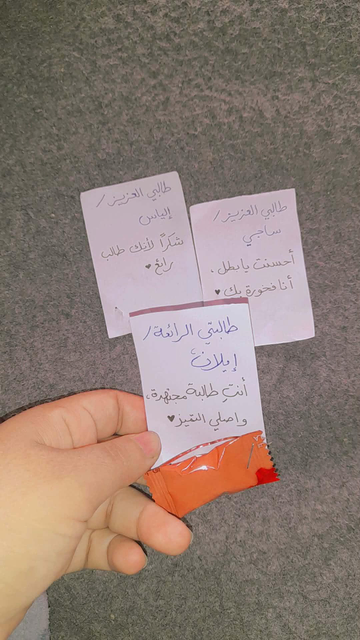 طالبي العزيز /
إلياس
شكرًا لأنك طالب
رائع ♥
طالبي العزيز /
ساجي
أحسنت يا بطل،
أنا فخورة بك ♥
طالبتي الرائعة /
إيلان،
أنتِ طالبة مجتهدة،
واصلي التميز ♥